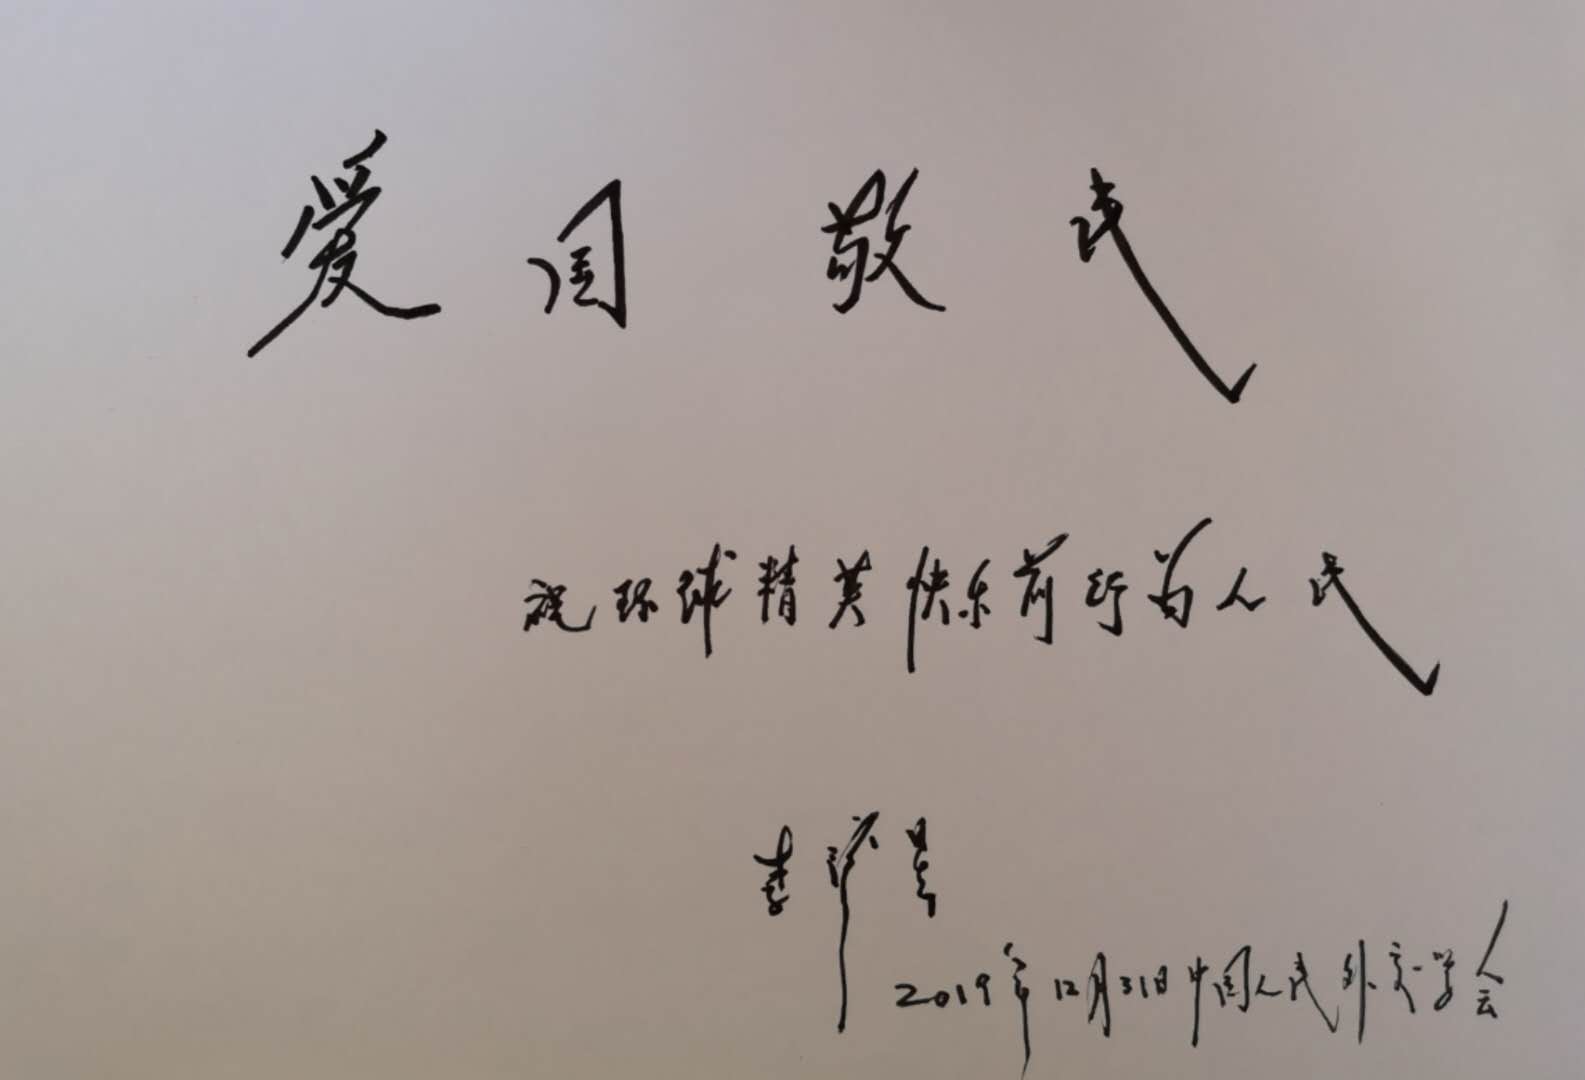 爱国敬民
祝环球精英快乐前行为人民
李肇星
2019年12月31日中国人民外交学会